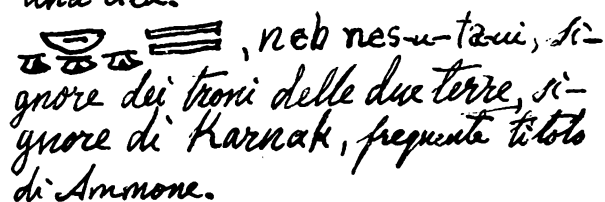 una dea.
, neb nes-u-taui, si-
gnore dei troni delle due terre, si-
gnore di Karnak, frequente titolo
di Ammone.